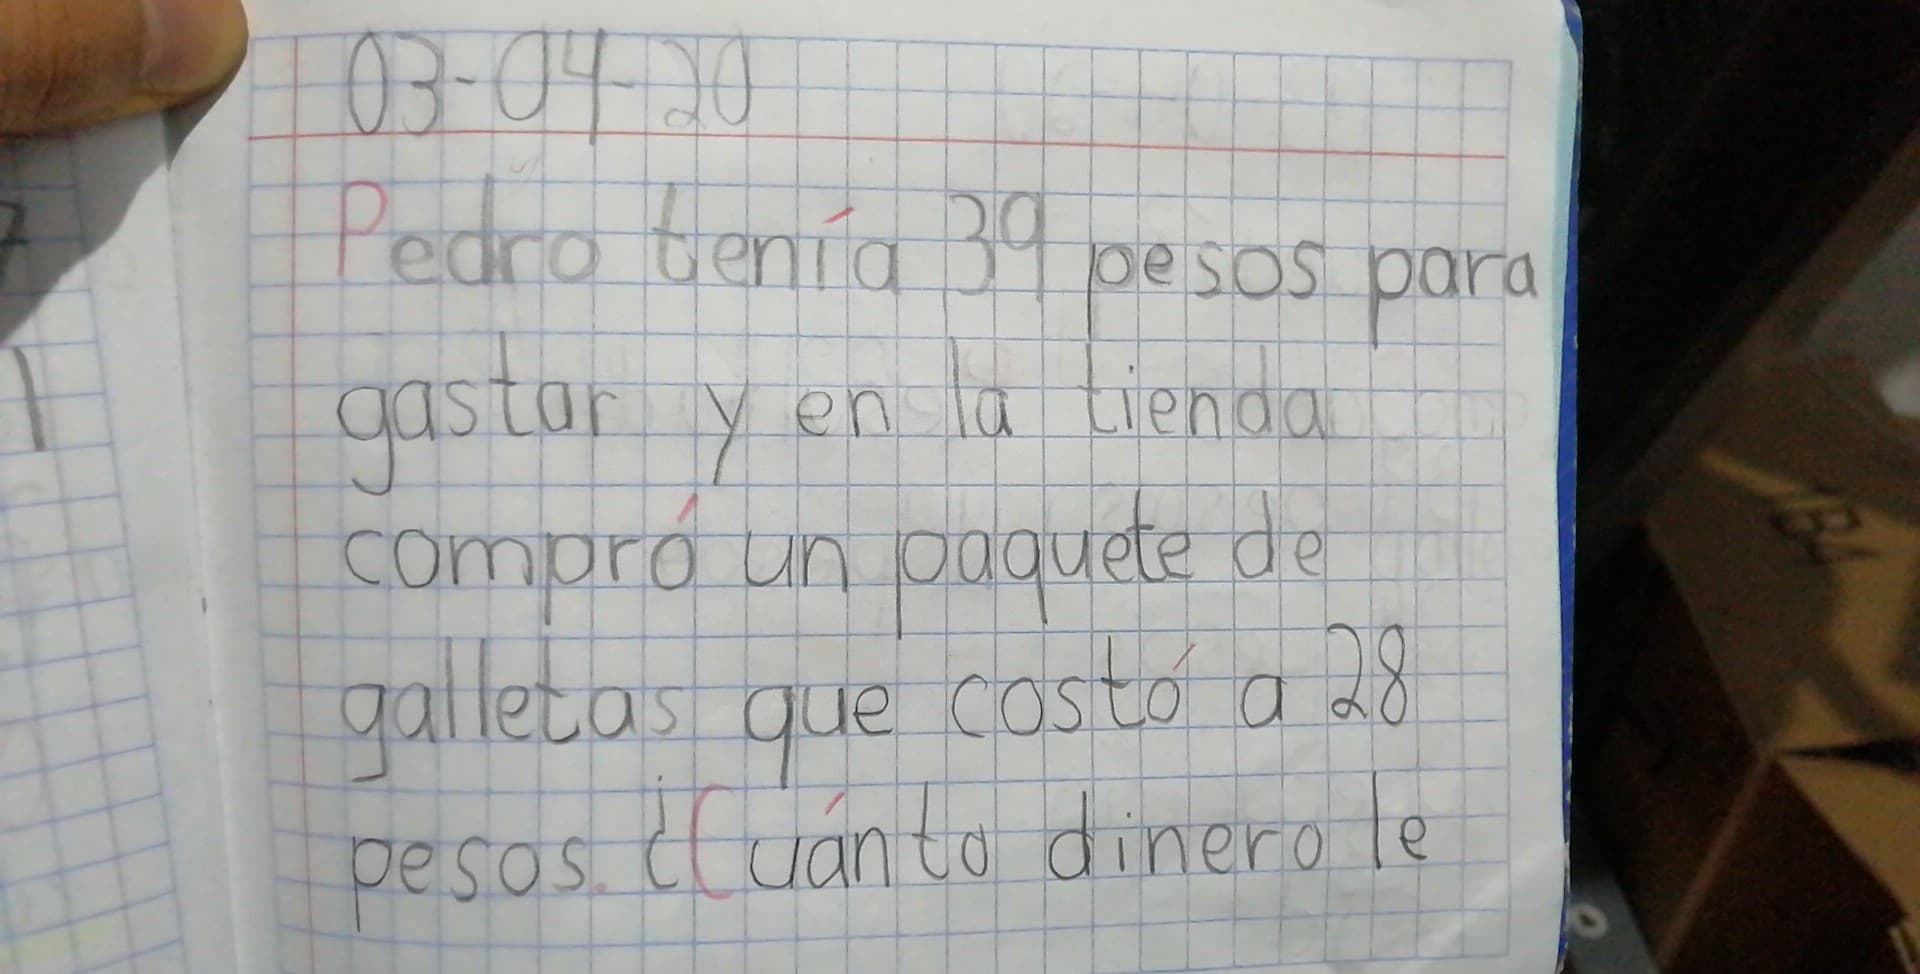 03-04-20
Pedro tenía 39 pesos para
gastar y en la tienda
compró un paquete de
galletas que costó a 28
pesos. ¿Cuánto dinero le